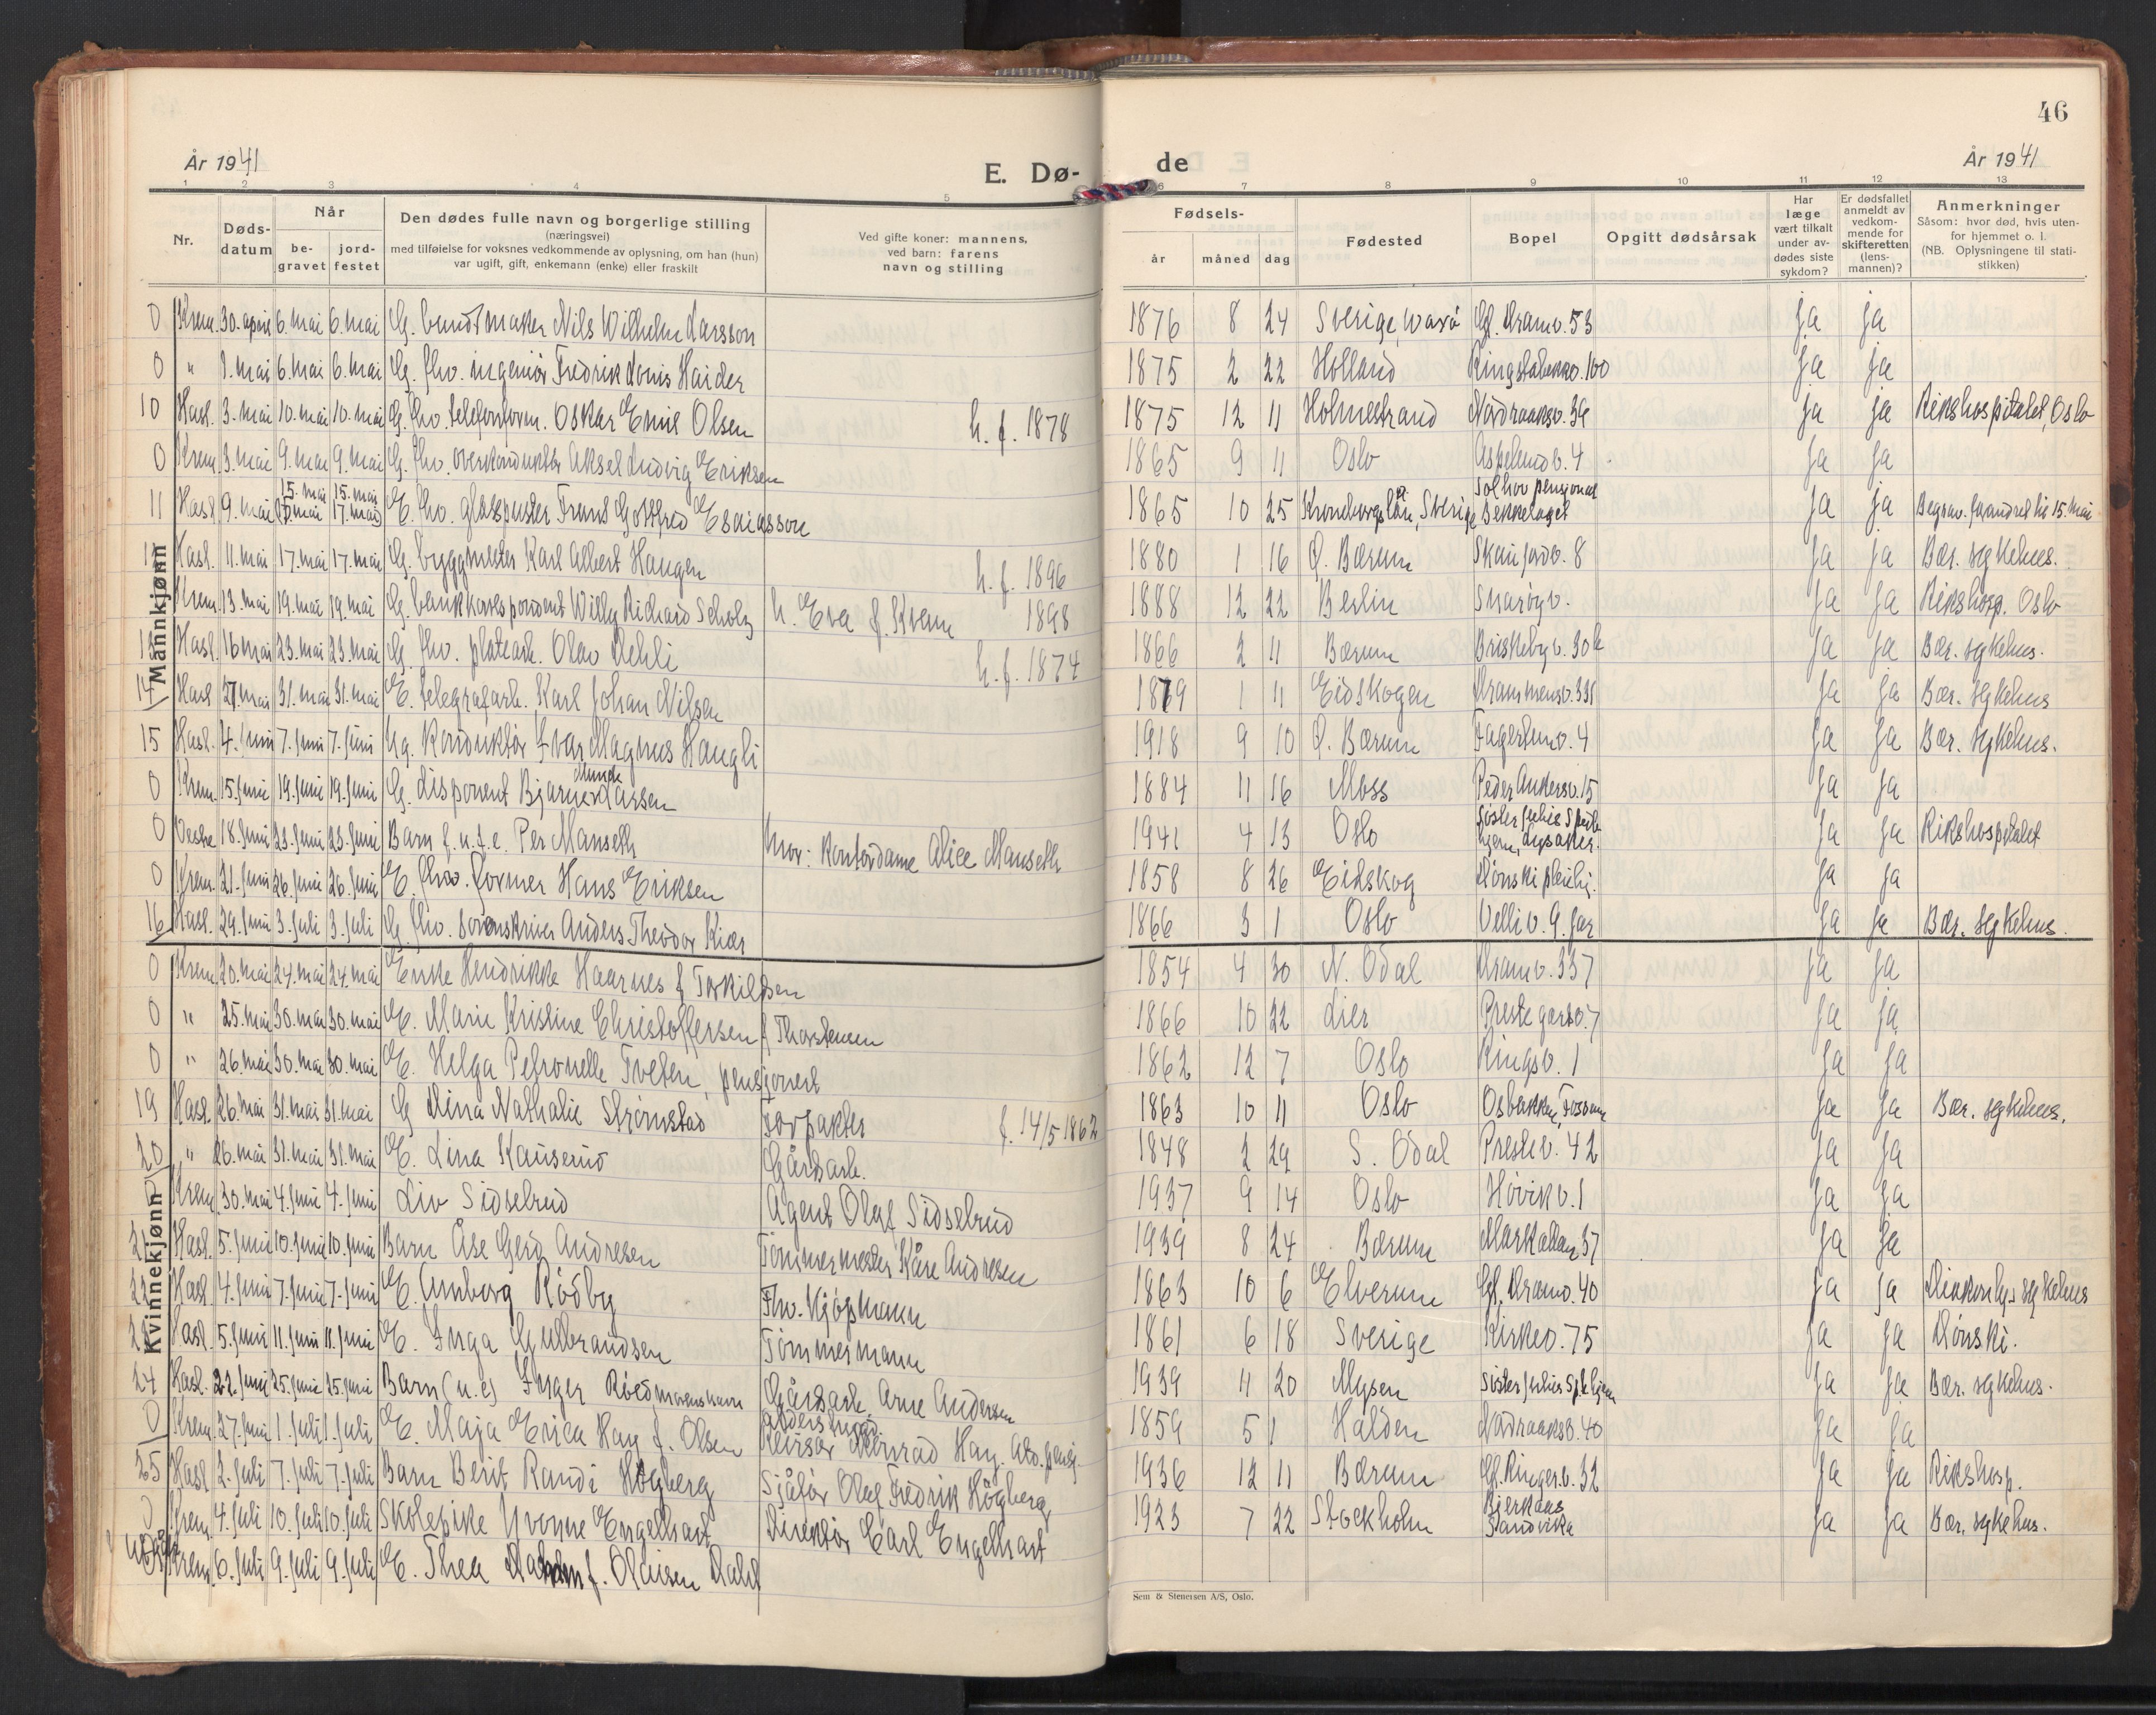 46
År 1941
E. Dø-
de
År 1941
1 2 3 4 5 6 7 8 9 10 11 12 13
Nr.
Døds-
datum
Når
be-
gravet
jord-
festet
Den dødes fulle navn og borgerlige stilling
(næringsvei)
med tilføielse for voksnes vedkommende av oplysning, om han (hun)
var ugift, gift, enkemann (enke) eller fraskilt
Ved gifte koner: mannens,
ved barn: farens
navn og stilling
Fødsels-
år måned dag
Fødested
Bopel
Opgitt dødsårsak
Har
læge
vært tilkalt
under av-
dødes siste
sykdom?
Er dødsfallet
anmeldt av
vedkom-
mende for
skifteretten
(lens-
mannen)?
Anmerkninger
Såsom: hvor død, hvis uten-
for hjemmet o. l.
(NB. Oplysningene til stati-
stikken)
Mannkjønn
0 Krem. 30. april 6. mai 6. mai G. buntmaker Nils Wilhelm Larsson 1876 8 24 Sverige, Gl. Dramv. 53 ja ja
0 " 1. mai 6. mai 6. mai G. fhv. ingeniør Fredrik Louis Haider 1875 2 22 Holland Ringstabekkv. 100 ja ja
10 Hasl. 3. mai 10. mai 10. mai G. fhv. telefonform. Oskar Emil Olsen h. f. 1878 1875 12 11 Holmestrand Nordraaksv. 39 ja ja Rikshospitalet, Oslo
0 Krem. 3. mai 9. mai 9. mai G. fhv. overkonduktør Aksel Ludvig Eriksen 1865 9 11 Oslo Aspelundv. 4 ja ja
11 Hasl. 9. mai 15. mai 17. mai 15. mai 17. mai E. fhv. glasspuster Frans Gottfred Esaiasson 1865 10 25 Kronobergslän, Sverige Solhov pensjonat Bekkelaget ja ja Begrav. forandret til 15. mai
12 Hasl. 11. mai 17. mai 17. mai G. byggmester Karl Albert Haugen h. f. 1896 1880 1 16 Ø. Bærum Skaujordv. 8 ja ja Bær. sykehus.
Krem. 13. mai 19. mai 19. mai G. bankkorrespondent Willy Richard Scholz h. Eva f. Kvam 1898 1888 12 22 Berlin Snarøyv. ja ja Rikshosp. Oslo
13 Hasl. 16 mai 23. mai 23. mai G. fhv. platearb. Olav Dehli h. f. 1874 1866 2 11 Bærum Briskebyv. 30 ja ja Bær. sykehus.
14 Hasl 27. mai 31. mai 31. mai E. telegrafarb. Karl Johan Nilsen 1879 1 11 Eidskogen Drammensv. 331 ja ja Bær. sykehus
15 Hasl. 4. juni 7. juni 7. juni Ug. Konduktør Ivar Magnus Haugli 1918 9 10 Ø. Bærum Fagerlundv. 4 ja ja Bær. sykehus.
0 Krem. 15. juni 19. juni 19. juni G. disponent Bjarne Munch Larssen 1884 11 16 Moss Peder Ankersv. 15 ja ja
0 Vestre 18. juni 23. juni 23. juni Barn f. u. f. e. Per Manseth Mor: Kontordame Alice Manseth 1941 4 13 Oslo Søster Julies Spebhjem, Lysaker. ja ja Rikshospitalet
0 Krem. 21. juni 26. juni 26. juni E. fhv. Former Hans Eriksen 1858 8 26 Eidskog Dønski pleiehj. ja ja
16 Hasl. 29. juni 3. juli 3. juli G. fhv. sorenskriver Anders Theodor Kiær 1866 3 1 Oslo Velliv. 9. Jar ja ja Bær. sykehus.
Kvinnekjønn
0 Krem. 20. mai 24. mai 24. mai Enke Hendrikke Haarnes f Torkildsen 1854 4 30 N. Odal Dramv. 337 ja ja
0 " 25. mai 30. mai 30. mai E. Marie Kristine Christoffersen f Thorstensen 1866 10 22 Lier Prestegardsv. 7 ja ja
0 " 26. mai 30. mai 30. mai E. Helga Petronelle Tveten, pensjonert 1862 12 7 Oslo Ringsv. 1 ja ja
19 Hasl. 26. mai 31. mai 31. mai G Dina Nathalie Strømstad Forpakter f. 14/5 1862 1863 10 11 Oslo Osbakken, Fossum ja ja Bær. sykehus.
20 " 26. mai 31. mai 31. mai E. Lina Kauserud Gårdsarb. 1848 2 29 S. Odal Prestev. 42 ja ja
0 Krem. 30. mai 4. juni 4. juni Liv Sidselrud Agent Olaf Sidselrud 1937 9 14 Oslo Høvikv. 1 ja ja
21 Hasl. 5. juni 10. juni 10. juni Barn Åse Gerd Andresen Tømmermester Kåre Andresen 1939 8 24 Bærum Markalleen 37 ja ja
22 Hasl. 4. juni 7. juni 7. juni E. Amborg Rødby Fhv. Kjøpmann 1863 10 6 Elverum Gl. Dramv. 40 ja ja sykehus
23 Hasl. 5. juni 11. juni 11. juni E. Inga Gulbrandsen Tømmermann 1861 6 18 Sverige Kirkev. 75 ja ja Dønski.
24 Hasl. 22. juni 25. juni 25. juni Barn (u. e) Inger Gårdsarb. Arne Andersen 1939 4 20 Mysen Søster Julies Spbhjem ja ja Bær. sykehus.
0 Krem. 27. juni 1. juli 1. juli E. Maja Erica Hay f. Olsen Reivisor Meinrad Hay. 1859 5 1 Halden Nordraaksv. 40 ja ja
25 Hasl 2. juli 7. juli 7. juli Barn Berit Randi Høgberg Sjåfør Olaf Fredrik Högberg 1936 12 11 Bærum Gl. Ringer.v. 32 ja ja Rikshosp.
0 Krem. 4. juli 10. juli 10. juli Skolepike Yvonne Engelhart Direktør Carl Engelhart 1923 7 22 Stockholm Bjerkaas Sandvika ja ja Bær. sykehus.
Krem. 6. juli 9. juli 9. juli E. Thea f. Olaisen Dahl
Sem & Stenersen A/S, Oslo.